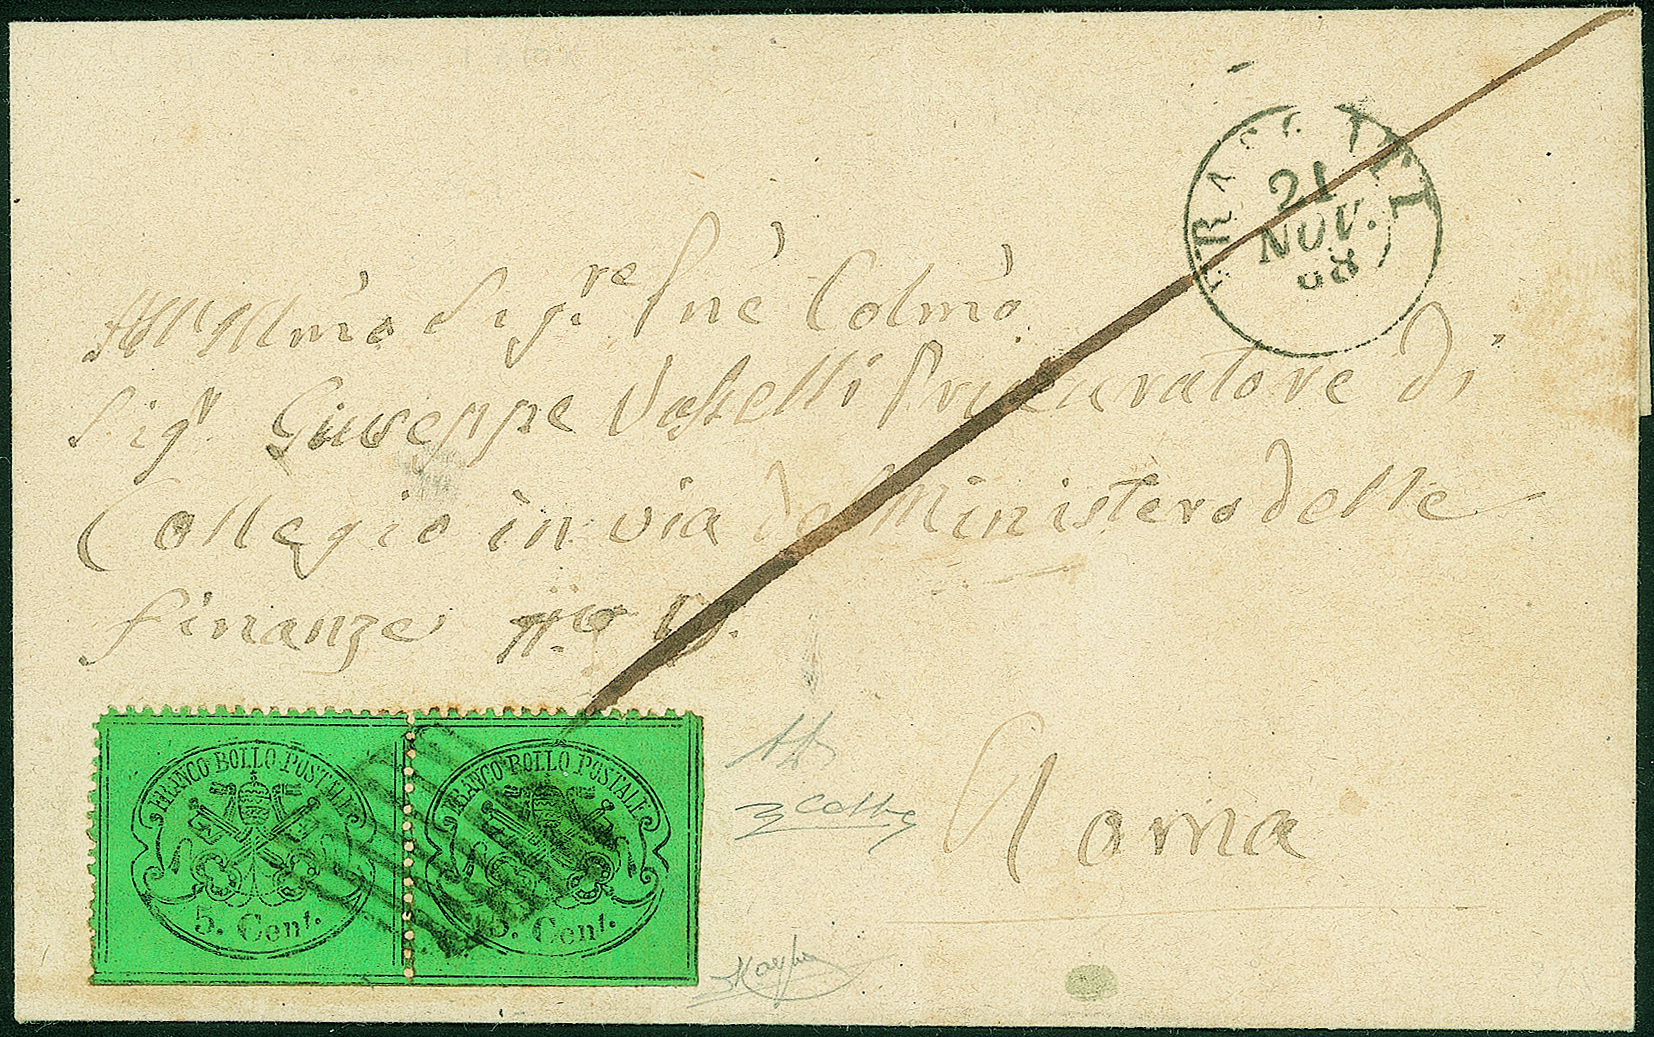 FRASCATI
21
NOV.
68
All' Illmo Sig.re Pne Colmo
Sigr. Giuseppe Vasselli Procuratore di
Collegio in via del Ministero delle
Finanze No
Roma
FRANCO BOLLO POSTALE
5. Cent.
FRANCO BOLLO POSTALE
5. Cent.